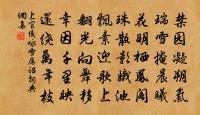 禁園凝朔氣
瑞雪掩晨曦
花明棲鳳閣
珠散影娥池
飄素迎歌上
翻光向舞移
幸因千里映
還繞萬年枝
上官儀詠雪應詔詞典
網集